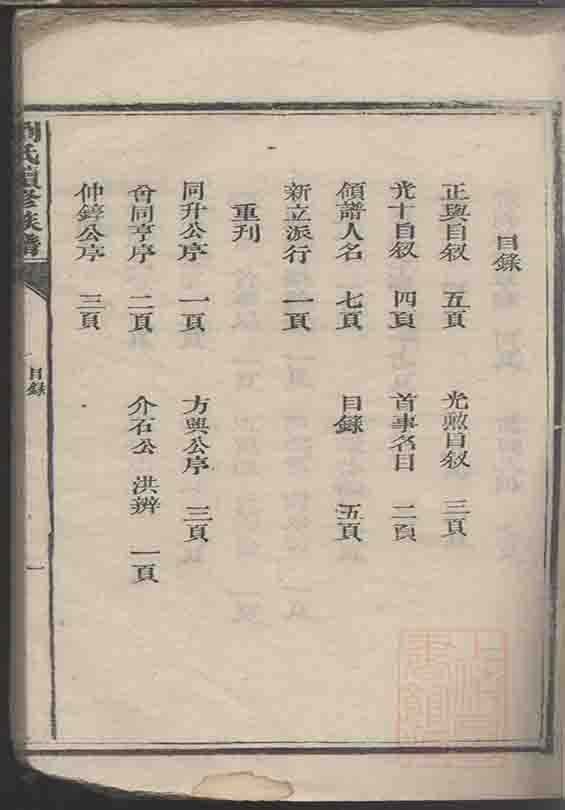 目錄
正與自叙 五頁 光煦自叙 三頁
光十自叙 四頁 首事名目 二頁
領譜人名 七頁 目錄 五頁
新立派行 一頁
重刊
同升公序 一頁 方與公序 三頁
會同亨序 二頁 介石公 洪辨 一頁
仲錞公序 三頁
劉氏續修族譜
目錄
一